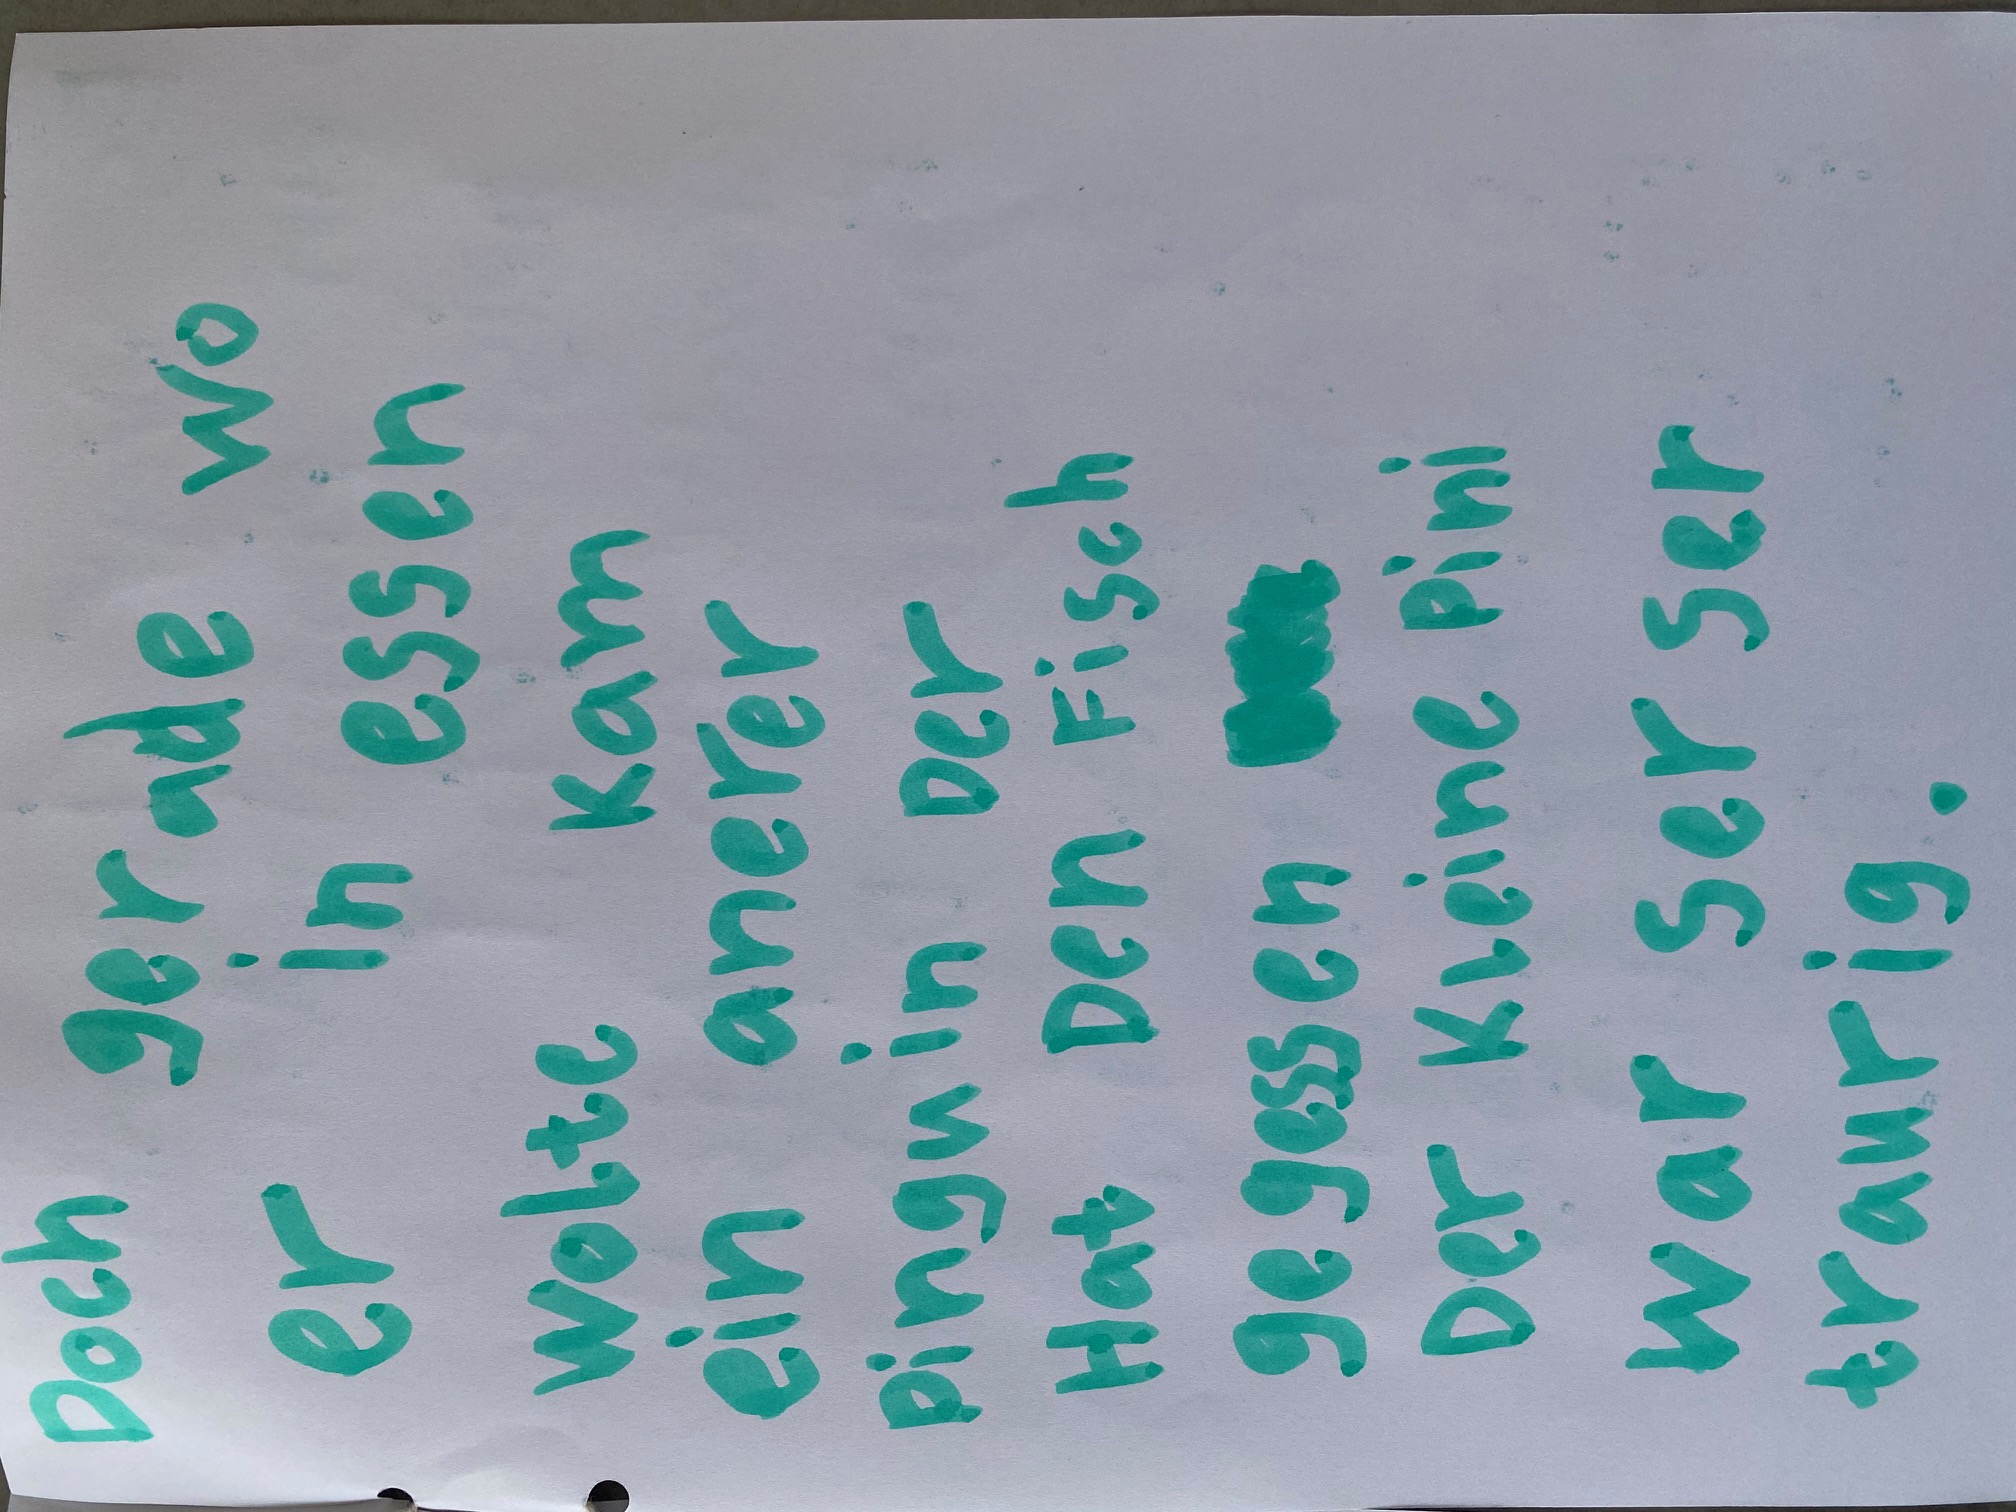 Doch gerade wo
er in essen
wolte kam
ein anerer
Pinguin Der
Hat Den Fisch
gegessen
Der Kleine Pini
war ser ser
traurig.